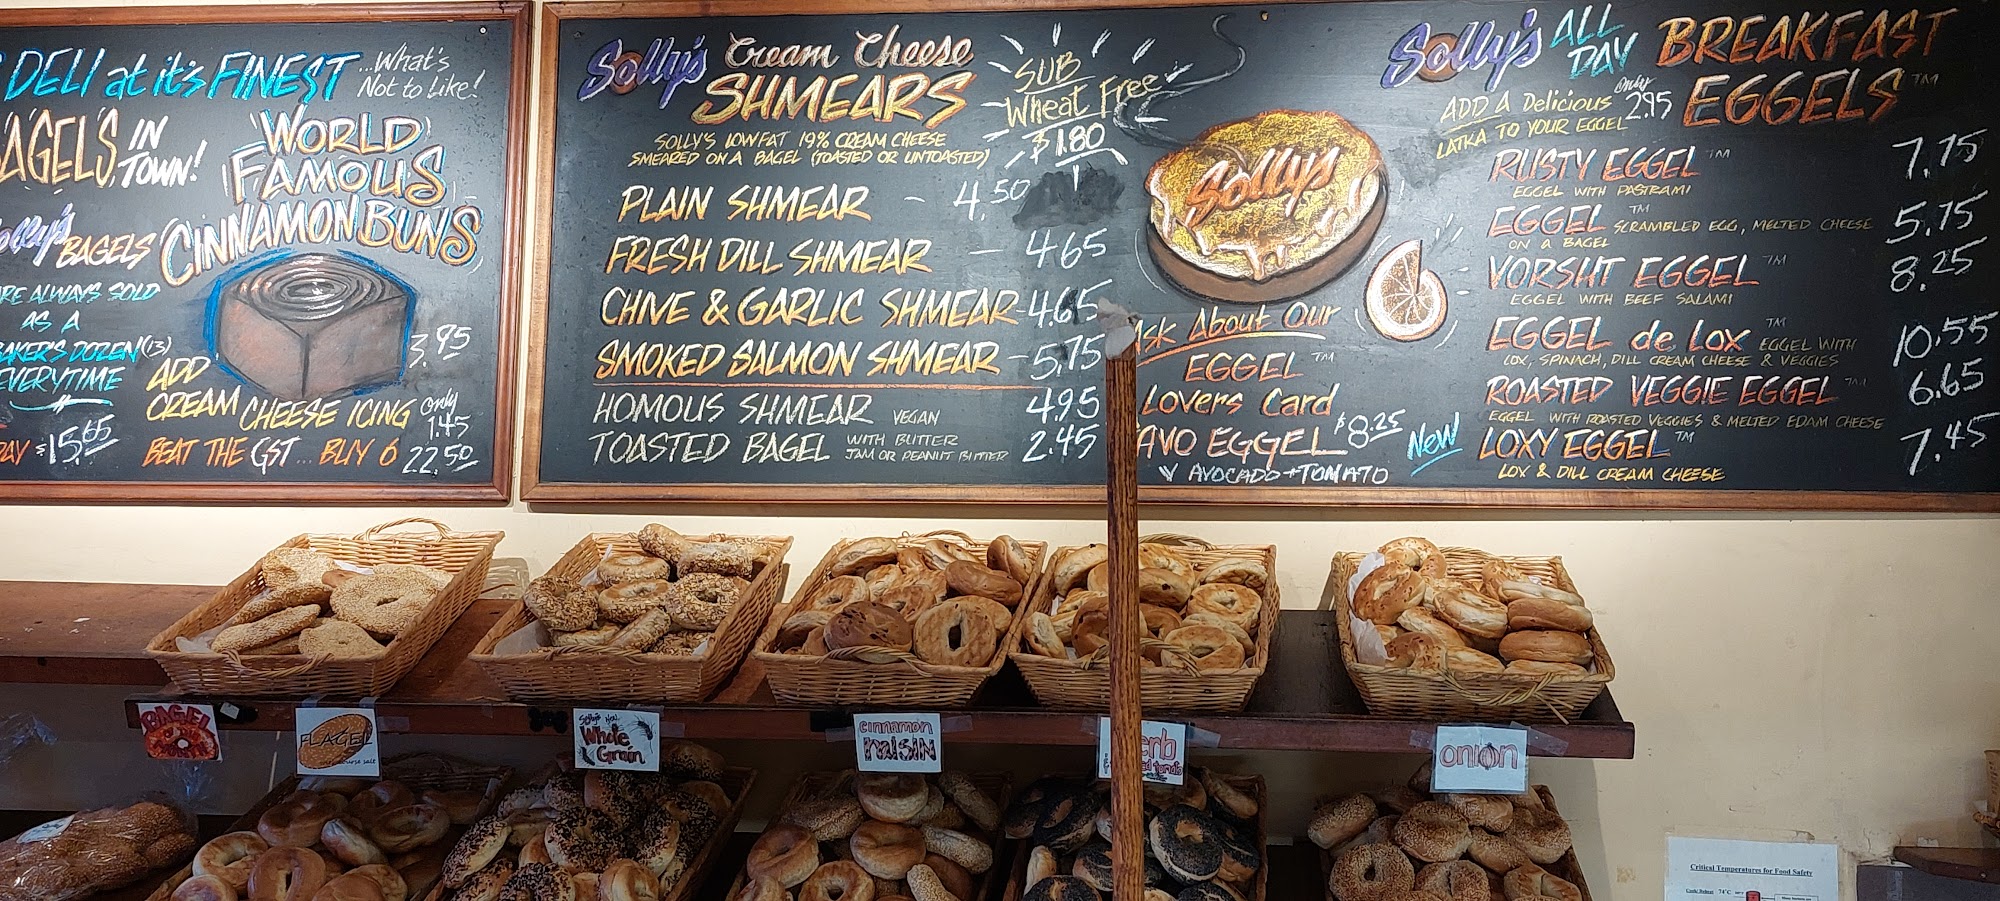 DELI at it's FINEST ...What's
Not to Like!
BAGELS IN
TOWN!
WORLD
FAMOUS
CINNAMON BUNS
Solly's
BAGELS
ARE ALWAYS SOLD
AS A
BAKER'S DOZEN (13)
EVERYTIME
DAY $15.65
3.95
ADD
CREAM CHEESE ICING only
1.45
BEAT THE GST... BUY 6 22.50
Solly's Cream Cheese
SHMEARS
SOLLY'S LOWFAT 19% CREAM CHEESE
SMEARED ON A BAGEL (TOASTED OR UNTOASTED)
SUB
Wheat Free
$1.80
PLAIN SHMEAR - 4.50
FRESH DILL SHMEAR - 4.65
CHIVE & GARLIC SHMEAR - 4.65
SMOKED SALMON SHMEAR - 5.75
HOMOUS SHMEAR VEGAN 4.95
TOASTED BAGEL WITH BUTTER
JAM OR PEANUT BUTTER 2.45
Solly's
Ask About Our
EGGEL™
Lovers Card
AVO EGGEL $8.25
AVOCADO + TOMATO
Solly's ALL
DAY BREAKFAST
EGGELS™
ADD A Delicious Only
LATKA TO YOUR EGGEL 2.95
RUSTY EGGEL™ 7.75
EGGEL WITH PASTRAMI
EGGEL™ SCRAMBLED EGG, MELTED CHEESE 5.75
ON A BAGEL
VORSHT EGGEL™ 8.25
EGGEL WITH BEEF SALAMI
EGGEL de LOX™ EGGEL WITH 10.55
LOX, SPINACH, DILL CREAM CHEESE & VEGGIES
ROASTED VEGGIE EGGEL™ 6.65
EGGEL WITH ROASTED VEGGIES & MELTED EDAM CHEESE
New LOXY EGGEL™ 7.45
LOX & DILL CREAM CHEESE
BAGEL
FLAGEL
Solly's New
Whole
Grain
cinnamon
raisin
onion
Critical Temperatures for Food Safety
74°C